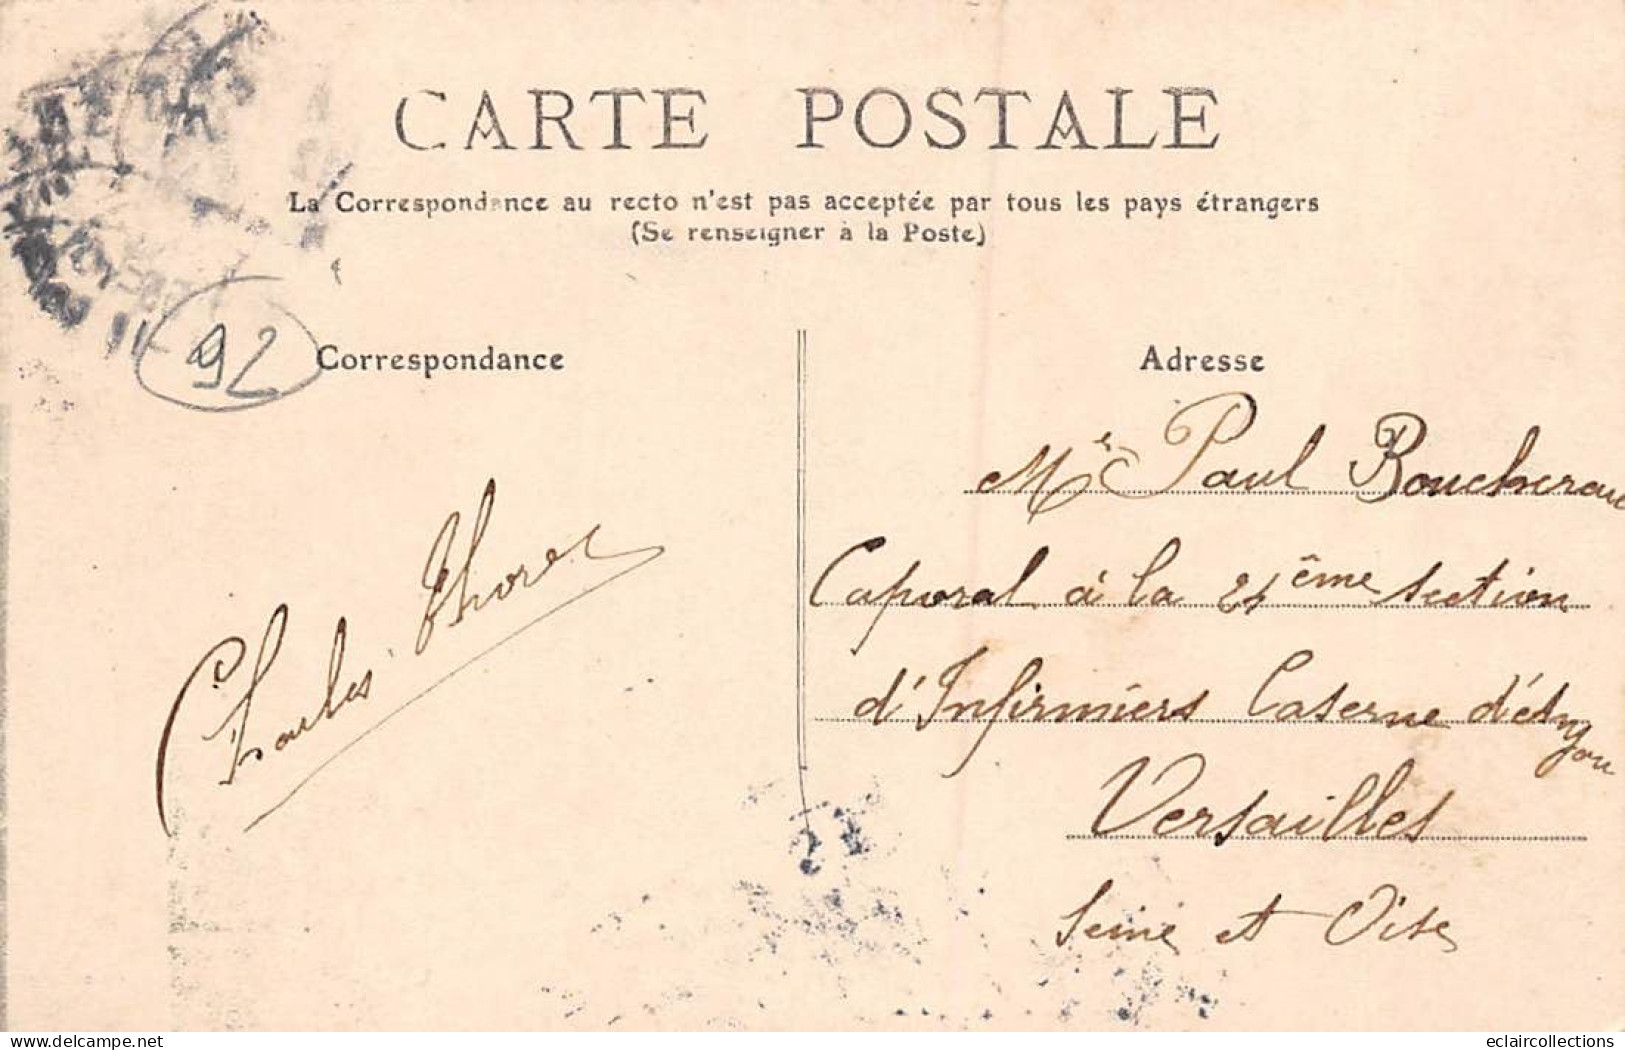 CARTE POSTALE
La Correspondance au recto n'est pas acceptée par tous les pays étrangers
(Se renseigner à la Poste)
92
Correspondance
Adresse
Paul Bouchereau
Caporal à la ème section
d'Infirmiers Caserne
Versailles
Seine et Oise
Charles
delcampe.net
eclaircollections